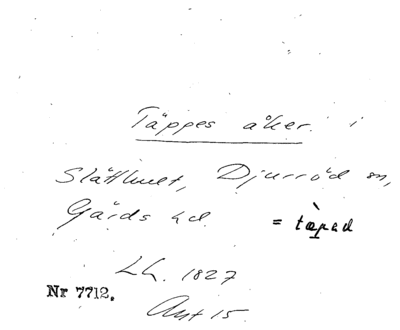 Täppes åker i
Slätthult, Djurröd sn,
Gärds hd. = tàpad
Lh. 1827
Nr 7712.
Avt 15